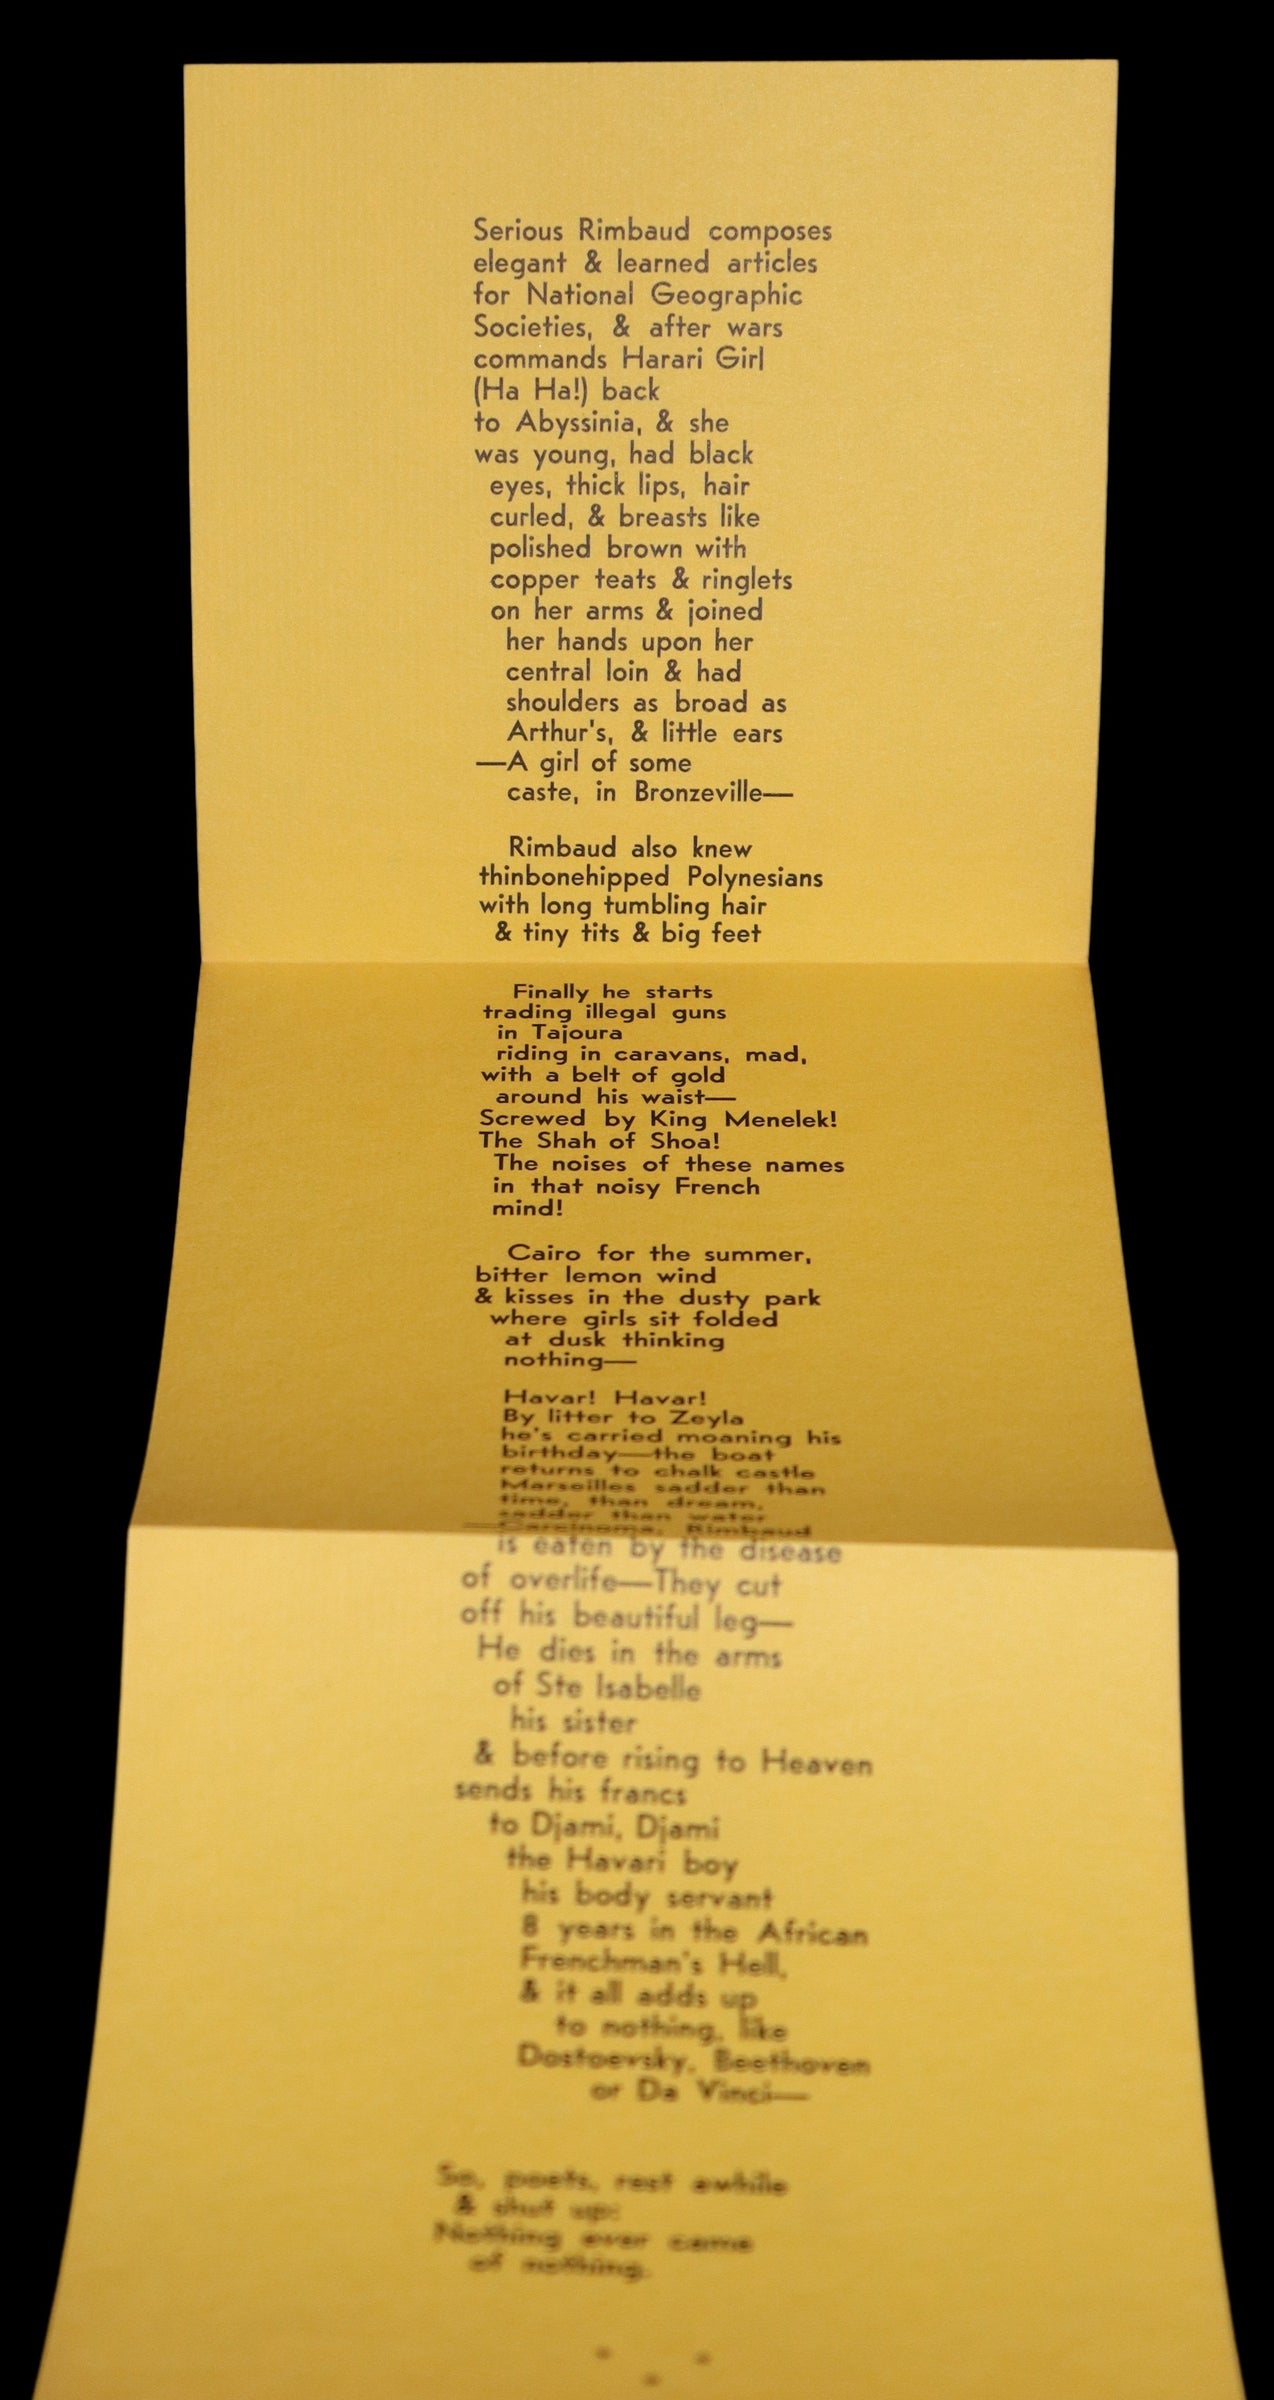 Serious Rimbaud composes
elegant & learned articles
for National Geographic
Societies, & after wars
commands Harari Girl
(Ha Ha!) back
to Abyssinia, & she
was young, had black
eyes, thick lips, hair
curled, & breasts like
polished brown with
copper teats & ringlets
on her arms & joined
her hands upon her
central loin & had
shoulders as broad as
Arthur's, & little ears
—A girl of some
caste, in Bronzeville—
Rimbaud also knew
thinbonehipped Polynesians
with long tumbling hair
& tiny tits & big feet
Finally he starts
trading illegal guns
in Tajoura
riding in caravans, mad,
with a belt of gold
around his waist—
Screwed by King Menelek!
The Shah of Shoa!
The noises of these names
in that noisy French
mind!
Cairo for the summer,
bitter lemon wind
& kisses in the dusty park
where girls sit folded
at dusk thinking
nothing—
Havar! Havar!
By litter to Zeyla
he's carried moaning his
birthday—the boat
returns to chalk castle
Marseilles sadder than
time, than dream,
sadder than water
—Carcinoma, Rimbaud
is eaten by the disease
of overlife—They cut
off his beautiful leg—
He dies in the arms
of Ste Isabelle
his sister
& before rising to Heaven
sends his francs
to Djami, Djami
the Havari boy
his body servant
8 years in the African
Frenchman's Hell,
& it all adds up
to nothing, like
Dostoevsky, Beethoven
or Da Vinci—
So, poets, rest awhile
& shut up:
Nothing ever came
of nothing.